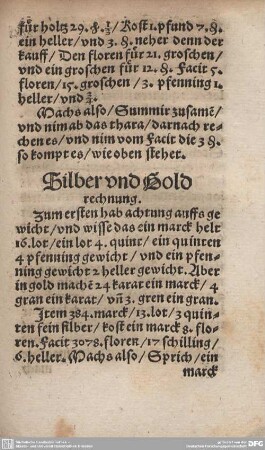 für holtz 29. ꝟ. ½/ Kost 1. pfund 7. ꝟ.
ein heller/ vnd 3. ꝟ. neher denn der
kauff/ Den floren für 21. groschen/
vnd ein groschen für 12. ꝟ. Facit 5.
floren/ 15. groschen/ 3. pfenning 1.
heller/ vnd
Machs also/ Summir zusamẽ/
vnd nim ab das thara/ darnach rech
chen es/ vnd nim vom Facit die 3 ꝟ.
so kompt es/ wie oben stehet.
Silber vnd Gold
rechnung.
Zum ersten hab achtung auffs ge
wicht/ vnd wisse das ein marck helt
16. lot/ ein lot 4. quint/ ein quinten
4 pfenning gewicht/ vnd ein pfen-
ning gewicht 2 heller gewicht. Aber
in gold machẽ 24 karat ein marck/ 4
gran ein karat/ vñ 3. gren ein gran.
Item 384. marck/ 13. lot/ 3 quin-
ten fein silber/ kost ein marck 8. flo-
ren. Facit 3078. floren/ 17 schilling/
6. heller. Machs also/ Sprich/ ein
marck
DFG